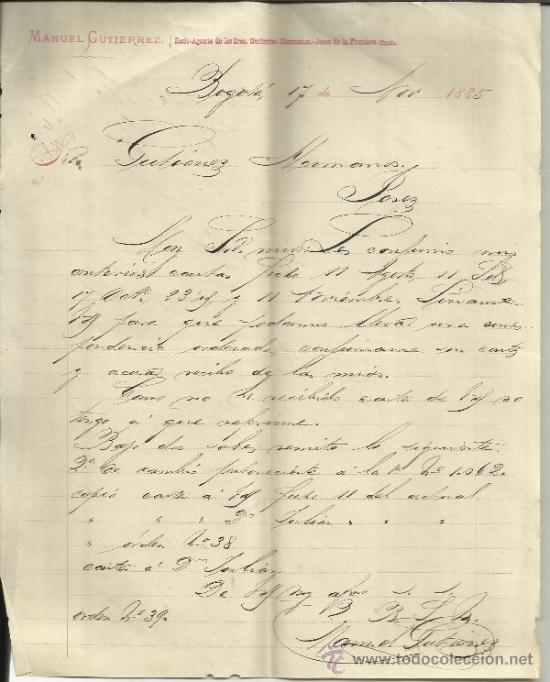 MANUEL GUTIERREZ. Socio-Agente de los Sres. Gutierrez Hermanos.-Jerez de la Frontera
Bogotá, 17 de Nov 1885
Sres. Gutierrez Hermanos,
Jerez
Muy Sres. mios: Les confirmo mis
anteriores cartas fecha 11 Agosto 11
17 Octe. 23 id y 11 Noviembre.
para que podamos llevar una corres-
pondencia ordenada, confirmarme sus cartas
y acusar recibo de las mias.
Como no he recibido carta de Vd no
tengo á que referirme.
Bajo dos sobres remito lo siguiente:
2a de cambio perteneciente á la No 1.062
copia carta á Vd fecha 11 del actual
" " " Dn Julián " "
" órden No 38
carta á Dn Julian
De Vd muy afmo S. S.
orden No 39. B. S. M.
Manuel Gutierrez
www.todocoleccion.net